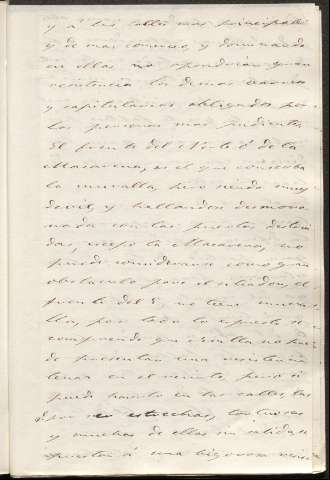 y á las calles mas principales
y de mas comercio, y dominando
en ellas no opondrian gran
resistencia los demas barrios
y capitularian obligados por
las personas mas pudientes
El frente del Norte ó de la
Macarena, es el que conserva
la muralla, pero siendo muy
devil y hallandose desmoro
nada con las puertas destrui
das, escepto la Macarena, no
puede considerarse como gran
obstaculo para el sitiador, el
frente del E. no tiene mura
lla, por todo lo espuesto se
comprende que Sevilla no pue
de presentar una resistencia
tenaz en el recinto, pero si
puede hacerlo en las calles, las
por estrechas, tortuosas
y muchas de ellas sin salida, se
prestan á una vigorosa